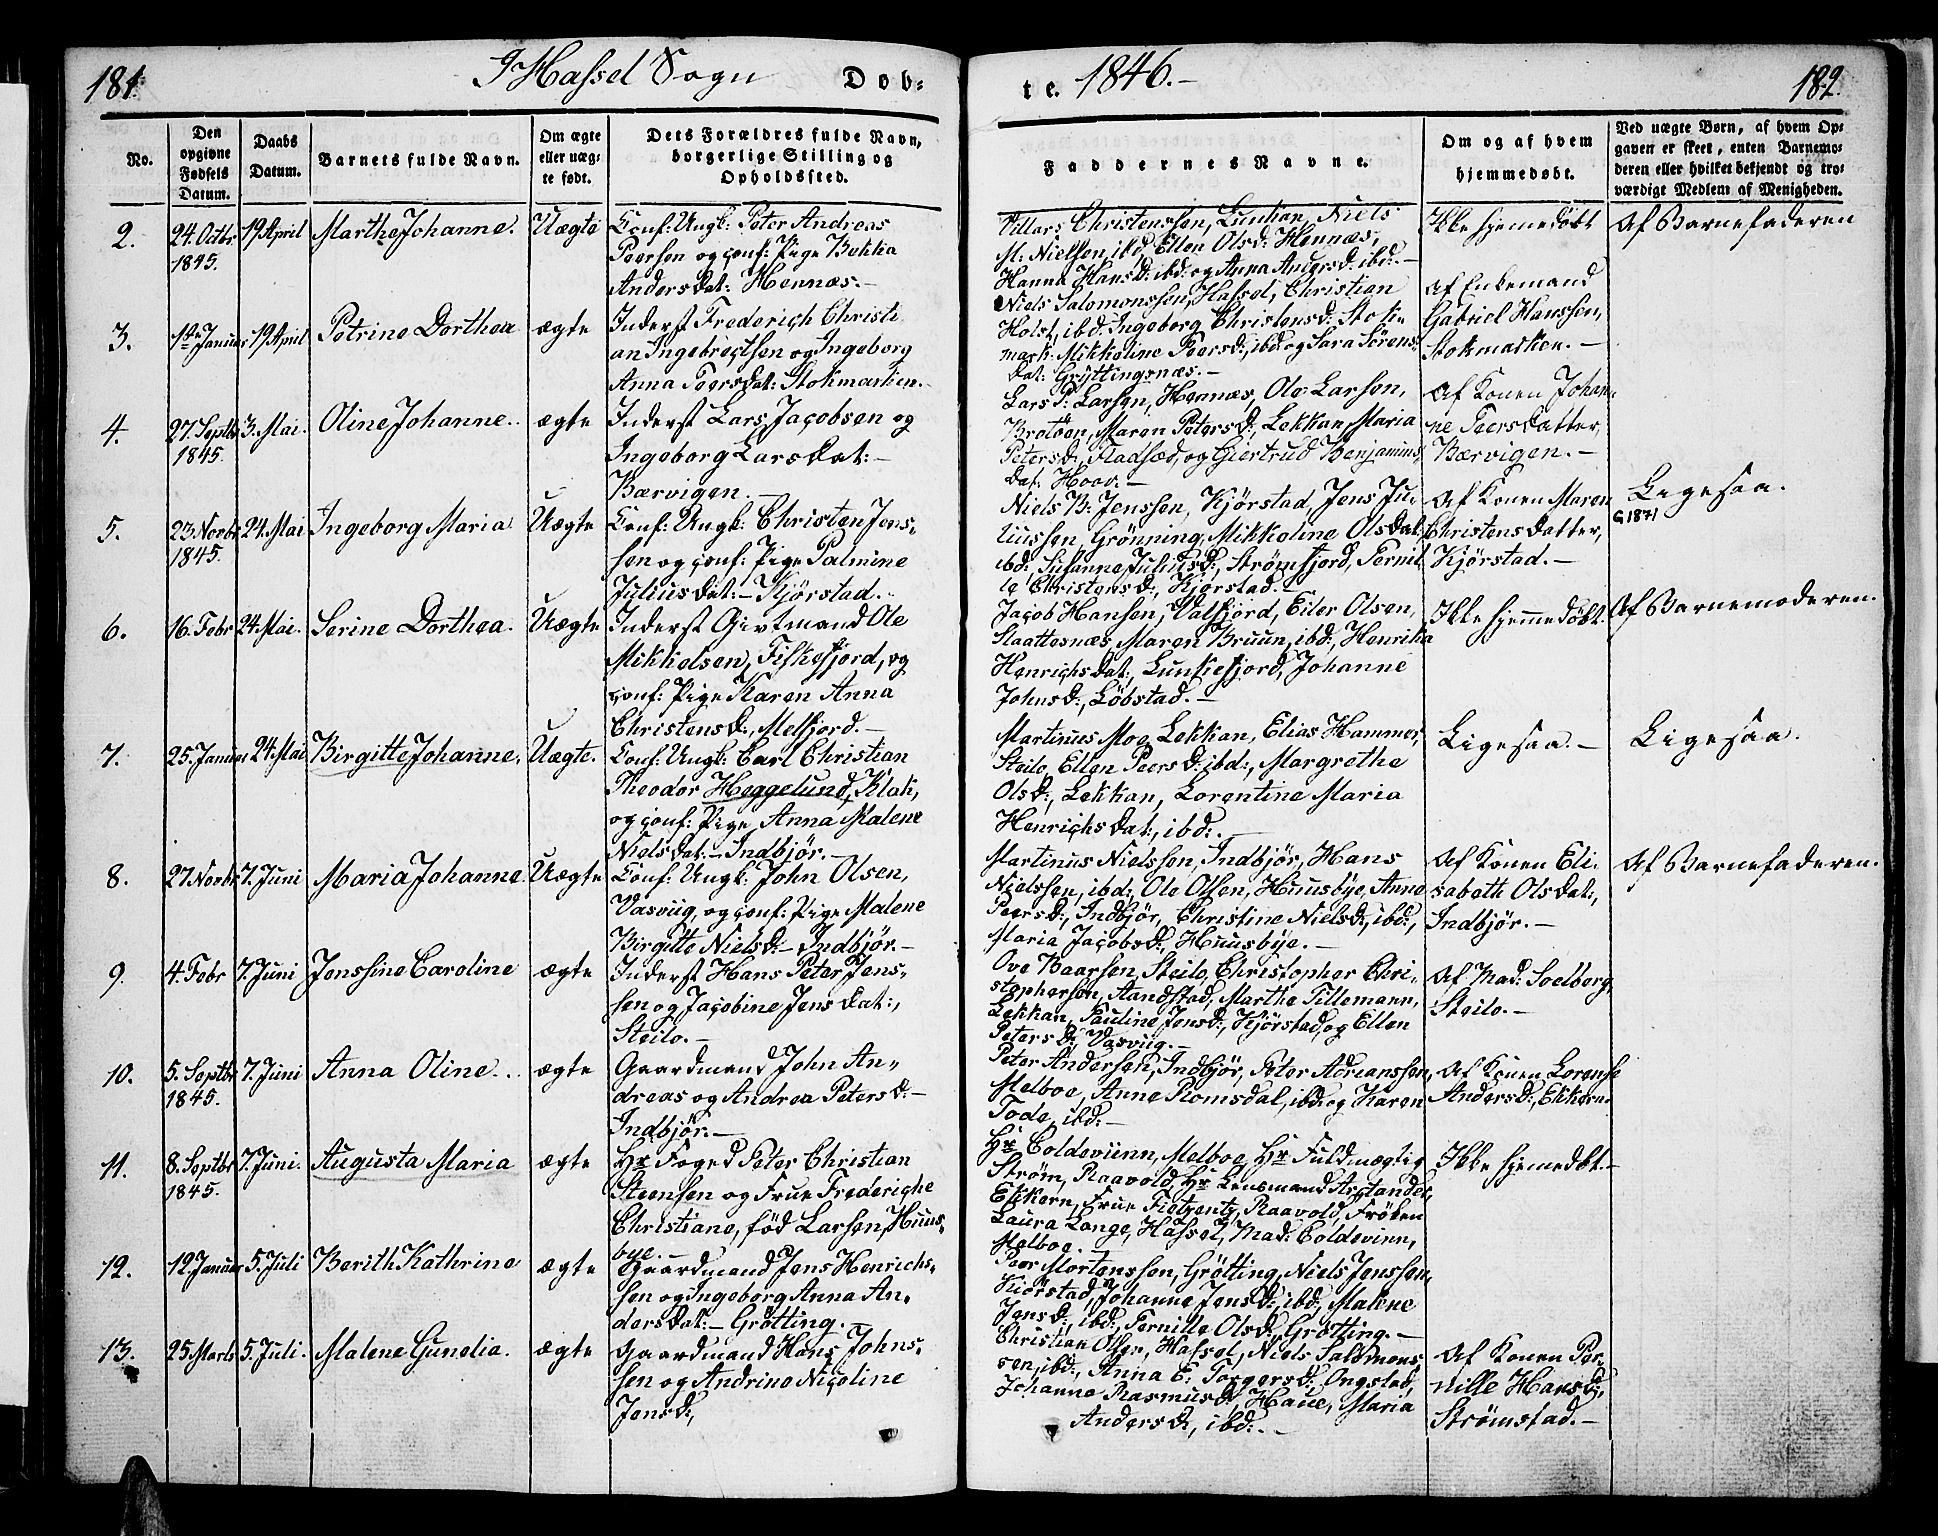 181.
I Hassel Sogn
Døb-
te. 1846.-
182.
No.
Den opgivne Fødsels Datum.
Daabs Datum.
Barnets fulde Navn.
Om ægte eller uæg- te født.
Dets Forældres fulde Navn, borgerlige Stilling og Opholdssted.
Faddernes Navne.
Om og af hvem hjemmedøbt.
Ved uægte Børn, af hvem Op- gaven er skeet, enten Barnemo- deren eller hvilket bekjendt og tro- værdigt Medlem af Menigheden.
2.
24. Octbr
1845.
19 April
Marthe Johanne.
Uægte
Conf: Ungk: Peter Andreas
Peersen og conf: Pige Bekka
Andersdat: Hennæs.-
Villars Christenssen, Lunkan, Niels
M: Nielssen, ibd, Ellen Olsd: Hennæs,
Hanna Hansd: ibd: og Anna Andersd: ibd:-
Ikke hjemedøbt
Af Barnefaderen
3.
1ste Januar
19 April
Petrine Dorthea
ægte
Inderst Frederich Christi
an Ingebrectsen og Ingeborg
Anna Peersdat: Stokmarken.
Niels Salomonssen, Hassel, Christian
Holst, ibd: Ingeborg Christensd: Stok-
mark: Mikkoline Peersd:, ibd: og Sara Sørens-
dat: Gryttingsnæs.-
af Enkemand
Gabriel Hanssen,
Stokmarken.-
4.
27. Septbr
1845.
3. Mai.
Oline Johanne.
ægte
Inderst Lars Jacobsen og
Ingeborg Larsdat:-
Bærvigen.-
Lars P: Larsen, Hennæs, Ole Larsen,
Brotöen, Maren Petersd:, Lekkan, Maria
Petersd:, Fladsæd, og Giertrud Benjamins-
dat: Hoov.-
Af Konen Johan-
ne Peersdatter,
Bærvigen.-
5.
23. Novbr
1845.
24. Mai
Ingeborg Maria
Uægte
Conf: Ungk: Christen Jens-
sen og conf: Pige Palmine
Juliusdat:- Kjörstad.-
Niels B: Jenssen, Kjörstad, Jens Ju-
liussen, Grönning, Mikkoline Olsdat:,
ibd:, Susanne Juliusd:, Strömfjord, Pernil
le Christensd:, Kjörstad.-
Af Konen Maren
Christensdatter,
Kjörstad.-
Ligesaa.
G 1871
6.
16. Febr
24. Mai.
Serine Dorthea.
Uægte
Inderst Givtmand Ole
Mikkelsen, Fiskefjord, og
conf: Pige Karen Anna
Christensd:, Melfjord.-
Jacob Hansen, Valfjord, Eiler Olsen,
Slaattesnæs, Maren Bruun, ibd:, Henrika
Henrichsdat:, Lunkefjord, Johanne
Johnsd:, Löbstad.-
Ikke hjemmedøbt.
Af Barnemoderen.
7.
25. Januar
24. Mai
Birgitte Johanne,
Uægte.
Conf: Ungk: Carl Christian
Theodor Heggelund, Klak,
og conf: Pige Anna Malene
Nielsdat:- Indbjör.-
Martinus Moe, Lekkan, Elias Hammer,
Steilo, Ellen Peersd: ibd:, Margrethe
Olsd:, Lekkan, Lorentine Maria
Henrichsdat:, ibd:.-
Ligesaa.-
Ligesaa.
8.
27 Novbr
7. Juni
Maria Johanne
Uægte
Conf: Ungk: John Olsen,
Vasviig, og conf: Pige Malene
Birgitte Nielsd:- Indbjör.-
Martinus Nielssen, Indbjör, Hans
Nielssen, ibd:, Ole Olsen, Huusbye, Anne
Peersd:, Indbjör, Christine Nielsd:, ibd:,
Maria Jacobsd:, Huusbye.-
Af Konen Eli-
sabeth Olsdat:,
Indbjör.-
Af Barnefaderen.
9.
4. Febr
7. Juni
Jenssine Caroline
ægte
Inderst Hans Peter Jens-
sen og Jacobine Jensdat:,
Steilo.-
Ove Baarsen, Steilo, Christopher Chri-
stophersen, Aandstad, Marthe Tillemann,
Lekkan, Pauline Jensd:, Kjörstad, og Ellen
Petersd:, Vasviig.-
Af Mad: Soelberg,
Steilo.-
10.
5. Septbr
1845.
7. Juni
Anna Oline.
ægte
Gaardmand John An-
dreas og Andrea Petersd:-
Indbjör.-
Peter Andersen, Indbjör, Peter Adrianssen,
Melboe, Anne Romsdal, ibd: og Karen
Tode, ibd:-
Af Konen Lorense
Andersd:, Ekkern.
11.
8. Septbr
1845.
7. Juni.
Augusta Maria
ægte
Hr Foged Peter Christian
Steensen og Frue Frederiche
Christiane, föd Larsen, Huus-
bye.-
Hr Coldeviinn, Melboe, Hr Fuldmægtig
Ström, Raavold, Hr Lensmand
Ekkern, Frue Raavold, Fröken
Laura Lange, Hassel, Mad: Coldevinn,
Melboe.-
Ikke hjemedøbt.-
12.
12. Januar
5. Juli
Berith Kathrine
ægte
Gaardmand Jens Henrichs-
sen og Ingeborg Anna An-
dersdat:- Grötting.-
Peer Mortenssen, Grötting, Niels Jenssen,
Kiörstad, Johanne Jensd:, ibd:, Malene
Jensd:, ibd:, Pernille Olsd:, Grötting.-
13.
25. Marts
5. Juli.
Malene Gunelia.
ægte
Gaardmand Hans Johns-
sen og Andrine Nicoline
Jensd:,
Christian Olsen, Hassel, Niels Salomons-
sen, ibd:, Anna E: Torgersd: Ongstad,
Johanna Rasmusd:, Haue, Maria
Andersd:, ibd:.-
Af Konen Per-
nille Hansd:,
Strömstad.-